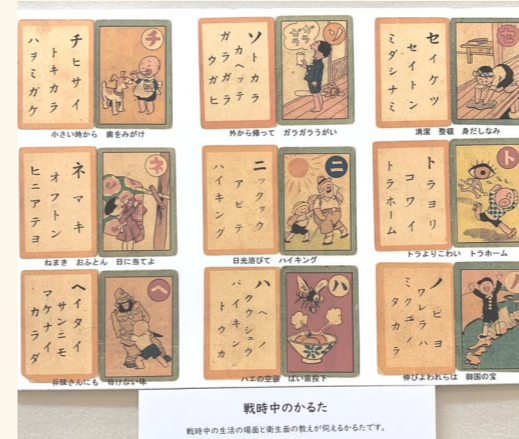 チヒサイ
トキカラ
ハヲミガケ
チ
小さい時から 歯をみがけ
ソトカラ
カヘッテ
ガラガラ
ウガヒ
ソ
ガラ
ガラ
外から帰って ガラガラうがい
セイケツ
セイトン
ミダシナミ
セ
清潔 整頓 身だしなみ
ネマキ
オフトン
ヒニアテヨ
ネ
ねまき おふとん 日に当てよ
ニックヮウ
アビテ
ハイキング
ニ
日光浴びて ハイキング
トラヨリ
コワイ
トラホーム
ト
トラよりこわい トラホーム
ヘイタイ
サンニモ
マケナイ
カラダ
ヘ
兵隊さんにも 負けない体
ハヘノ
クウシュウ
バイキン
トウカ
ハ
ハエの空襲 ばい菌投下
ノビヨ
ワレラハ
ミクニノ
タカラ
ノ
伸びよわれらは 御国の宝
戦時中のかるた
戦時中の生活の場面と衛生面の教えが伺えるかるたです。